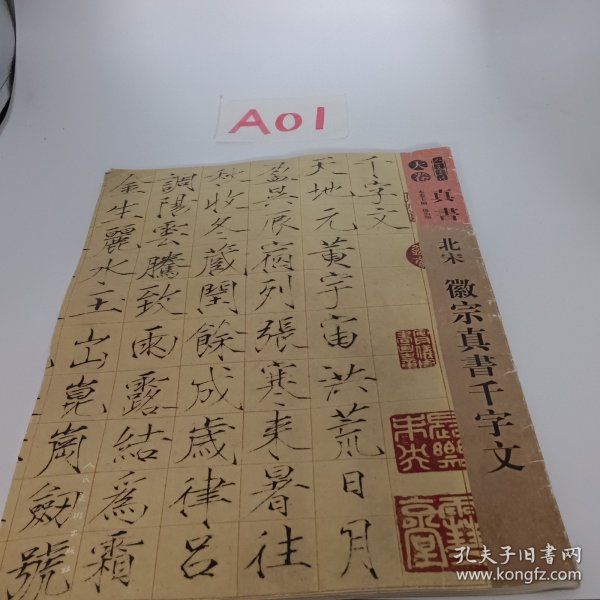 A01
大卷
真書
北宋 徽宗真書千字文
千字文
天地元黃宇宙洪荒日月
盈昃辰宿列張寒来暑往
秋收冬藏閏餘成歲律呂
調陽雲騰致雨露結爲霜
金生麗水玉出崑崗劒號
孔夫子旧书网
www.kongfz.com